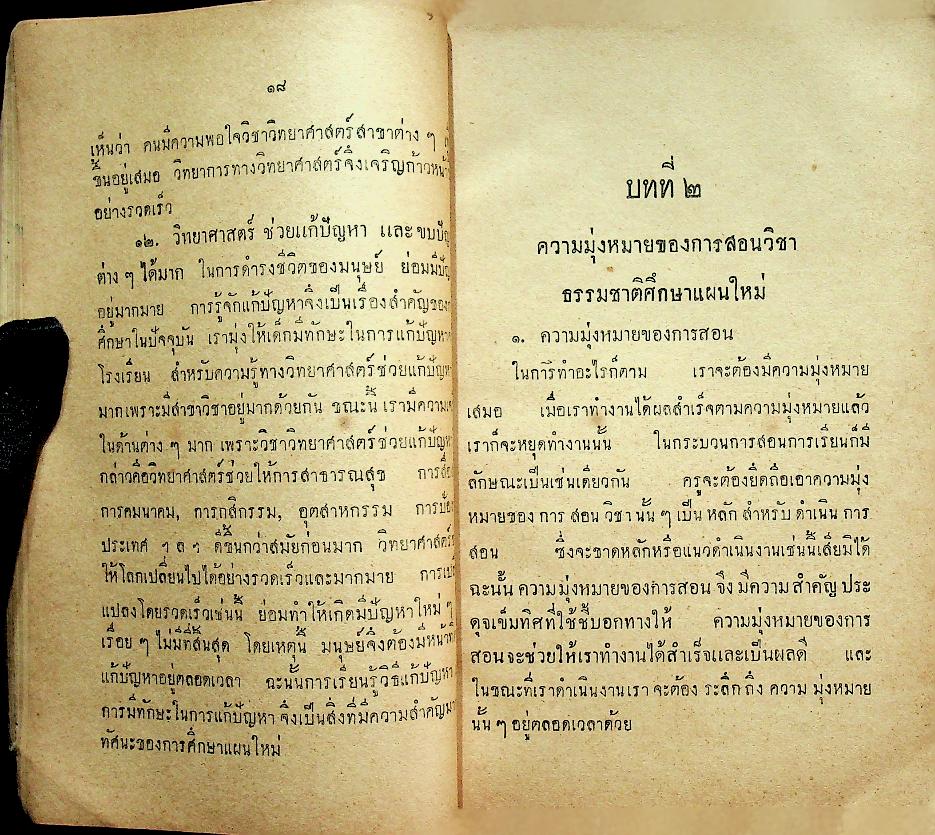 ๑๘
เห็นว่า คนมีความพอใจวิชาวิทยาศาสตร์สาขาต่าง ๆ
ขึ้นอยู่เสมอ วิทยาการทางวิทยาศาสตร์จึงเจริญก้าวหน้า
อย่างรวดเร็ว
๑๒. วิทยาศาสตร์ ช่วยแก้ปัญหา และ
ต่าง ๆ ได้มาก ในการดำรงชีวิตของมนุษย์ ย่อมมี
อยู่มากมาย การรู้จักแก้ปัญหาจึงเป็นเรื่องสำคัญของ
ศึกษาในปัจจุบัน เรามุ่งให้เด็กมีทักษะในการแก้ปัญหา
โรงเรียน สำหรับความรู้ทางวิทยาศาสตร์ช่วยแก้ปัญหา
มากเพราะมีสาขาวิชาอยู่มากด้วยกัน ขณะนี้ เรามีความ
ในด้านต่าง ๆ มาก เพราะวิชาวิทยาศาสตร์ช่วยแก้ปัญหา
กล่าวคือวิทยาศาสตร์ช่วยให้การสาธารณสุข
การคมนาคม, การกสิกรรม, อุตสาหกรรม
ประเทศ ฯ ล ฯ ดีขึ้นกว่าสมัยก่อนมาก วิทยาศาสตร์
ให้โลกเปลี่ยนไปได้อย่างรวดเร็วและมากมาย
แปลงโดยรวดเร็วเช่นนี้ ย่อมทำให้เกิดมีปัญหาใหม่ ๆ
เรื่อย ๆ ไม่มีที่สิ้นสุด โดยเหตุนี้ มนุษย์จึงต้องมีหน้าที่
แก้ปัญหาอยู่ตลอดเวลา ฉะนั้นการเรียนรู้วิธีแก้ปัญหา
การมีทักษะในการแก้ปัญหา จึงเป็นสิ่งที่มีความสำคัญ
ทัศนะของการศึกษาแผนใหม่
บทที่ ๒
ความมุ่งหมายของการสอนวิชา
ธรรมชาติศึกษาแผนใหม่
๑. ความมุ่งหมายของการสอน
ในการทำอะไรก็ตาม เราจะต้องมีความมุ่งหมาย
เสมอ เมื่อเราทำงานได้ผลสำเร็จตามความมุ่งหมายแล้ว
เราก็จะหยุดทำงานนั้น ในกระบวนการสอนการเรียนก็มี
ลักษณะเป็นเช่นเดียวกัน ครูจะต้องยึดถือเอาความมุ่ง
หมายของ การ สอน วิชา นั้น ๆ เป็น หลัก สำหรับ ดำเนิน การ
สอน ซึ่งจะขาดหลักหรือแนวดำเนินงานเช่นนี้เสียมิได้
ฉะนั้น ความมุ่งหมายของการสอน จึง มีความ สำคัญ ประ
ดุจเข็มทิศที่ใช้ชี้บอกทางให้ ความมุ่งหมายของการ
สอนจะช่วยให้เราทำงานได้สำเร็จและเป็นผลดี และ
ในขณะที่เราดำเนินงานเรา จะต้อง ระลึก ถึง ความ มุ่งหมาย
นั้น ๆ อยู่ตลอดเวลาด้วย